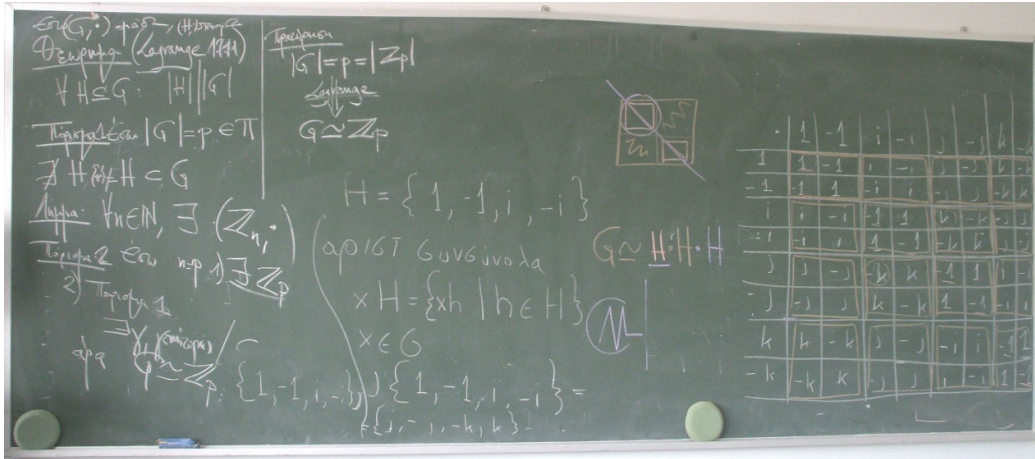 Έστω (G, ·)
Θεώρημα (Lagrange 1771)
∀ H ⊆ G: |H| | |G|
Πόρισμα 1 έστω |G| = p ∈ Π
∄ H, {e} ≠ H ⊂ G
Λήμμα: ∀n∈ℕ, ∃ (ℤn, ·)
Πόρισμα 2 Έστω n=p 1) ∃ ℤp
2) Πόρισμα 1
άρα
≃ ℤp
|G| = p = |ℤp|
Lagrange
⇓
G ≃ ℤp
H = { 1, -1, i, -i }
αριστ συνσύνολα
xH = {xh | h ∈ H}
x ∈ G
{1, -1, i, -i}, j {1, -1, i, -i} =
={j, -j, -k, k}
G ≃ H·H·H
· 1 -1 i -i j -j k -k
1 1 -1 i -i j -j k -k
-1 -1 1 -i i -j j -k k
i i -i -1 1 k -k
-i -i i 1 -1 -k k
j j -j -k k -1 1 i
-j -j j k -k 1 -1 -i
k k -k j -j -i i -1 1
-k -k k -j j i -i 1 -1